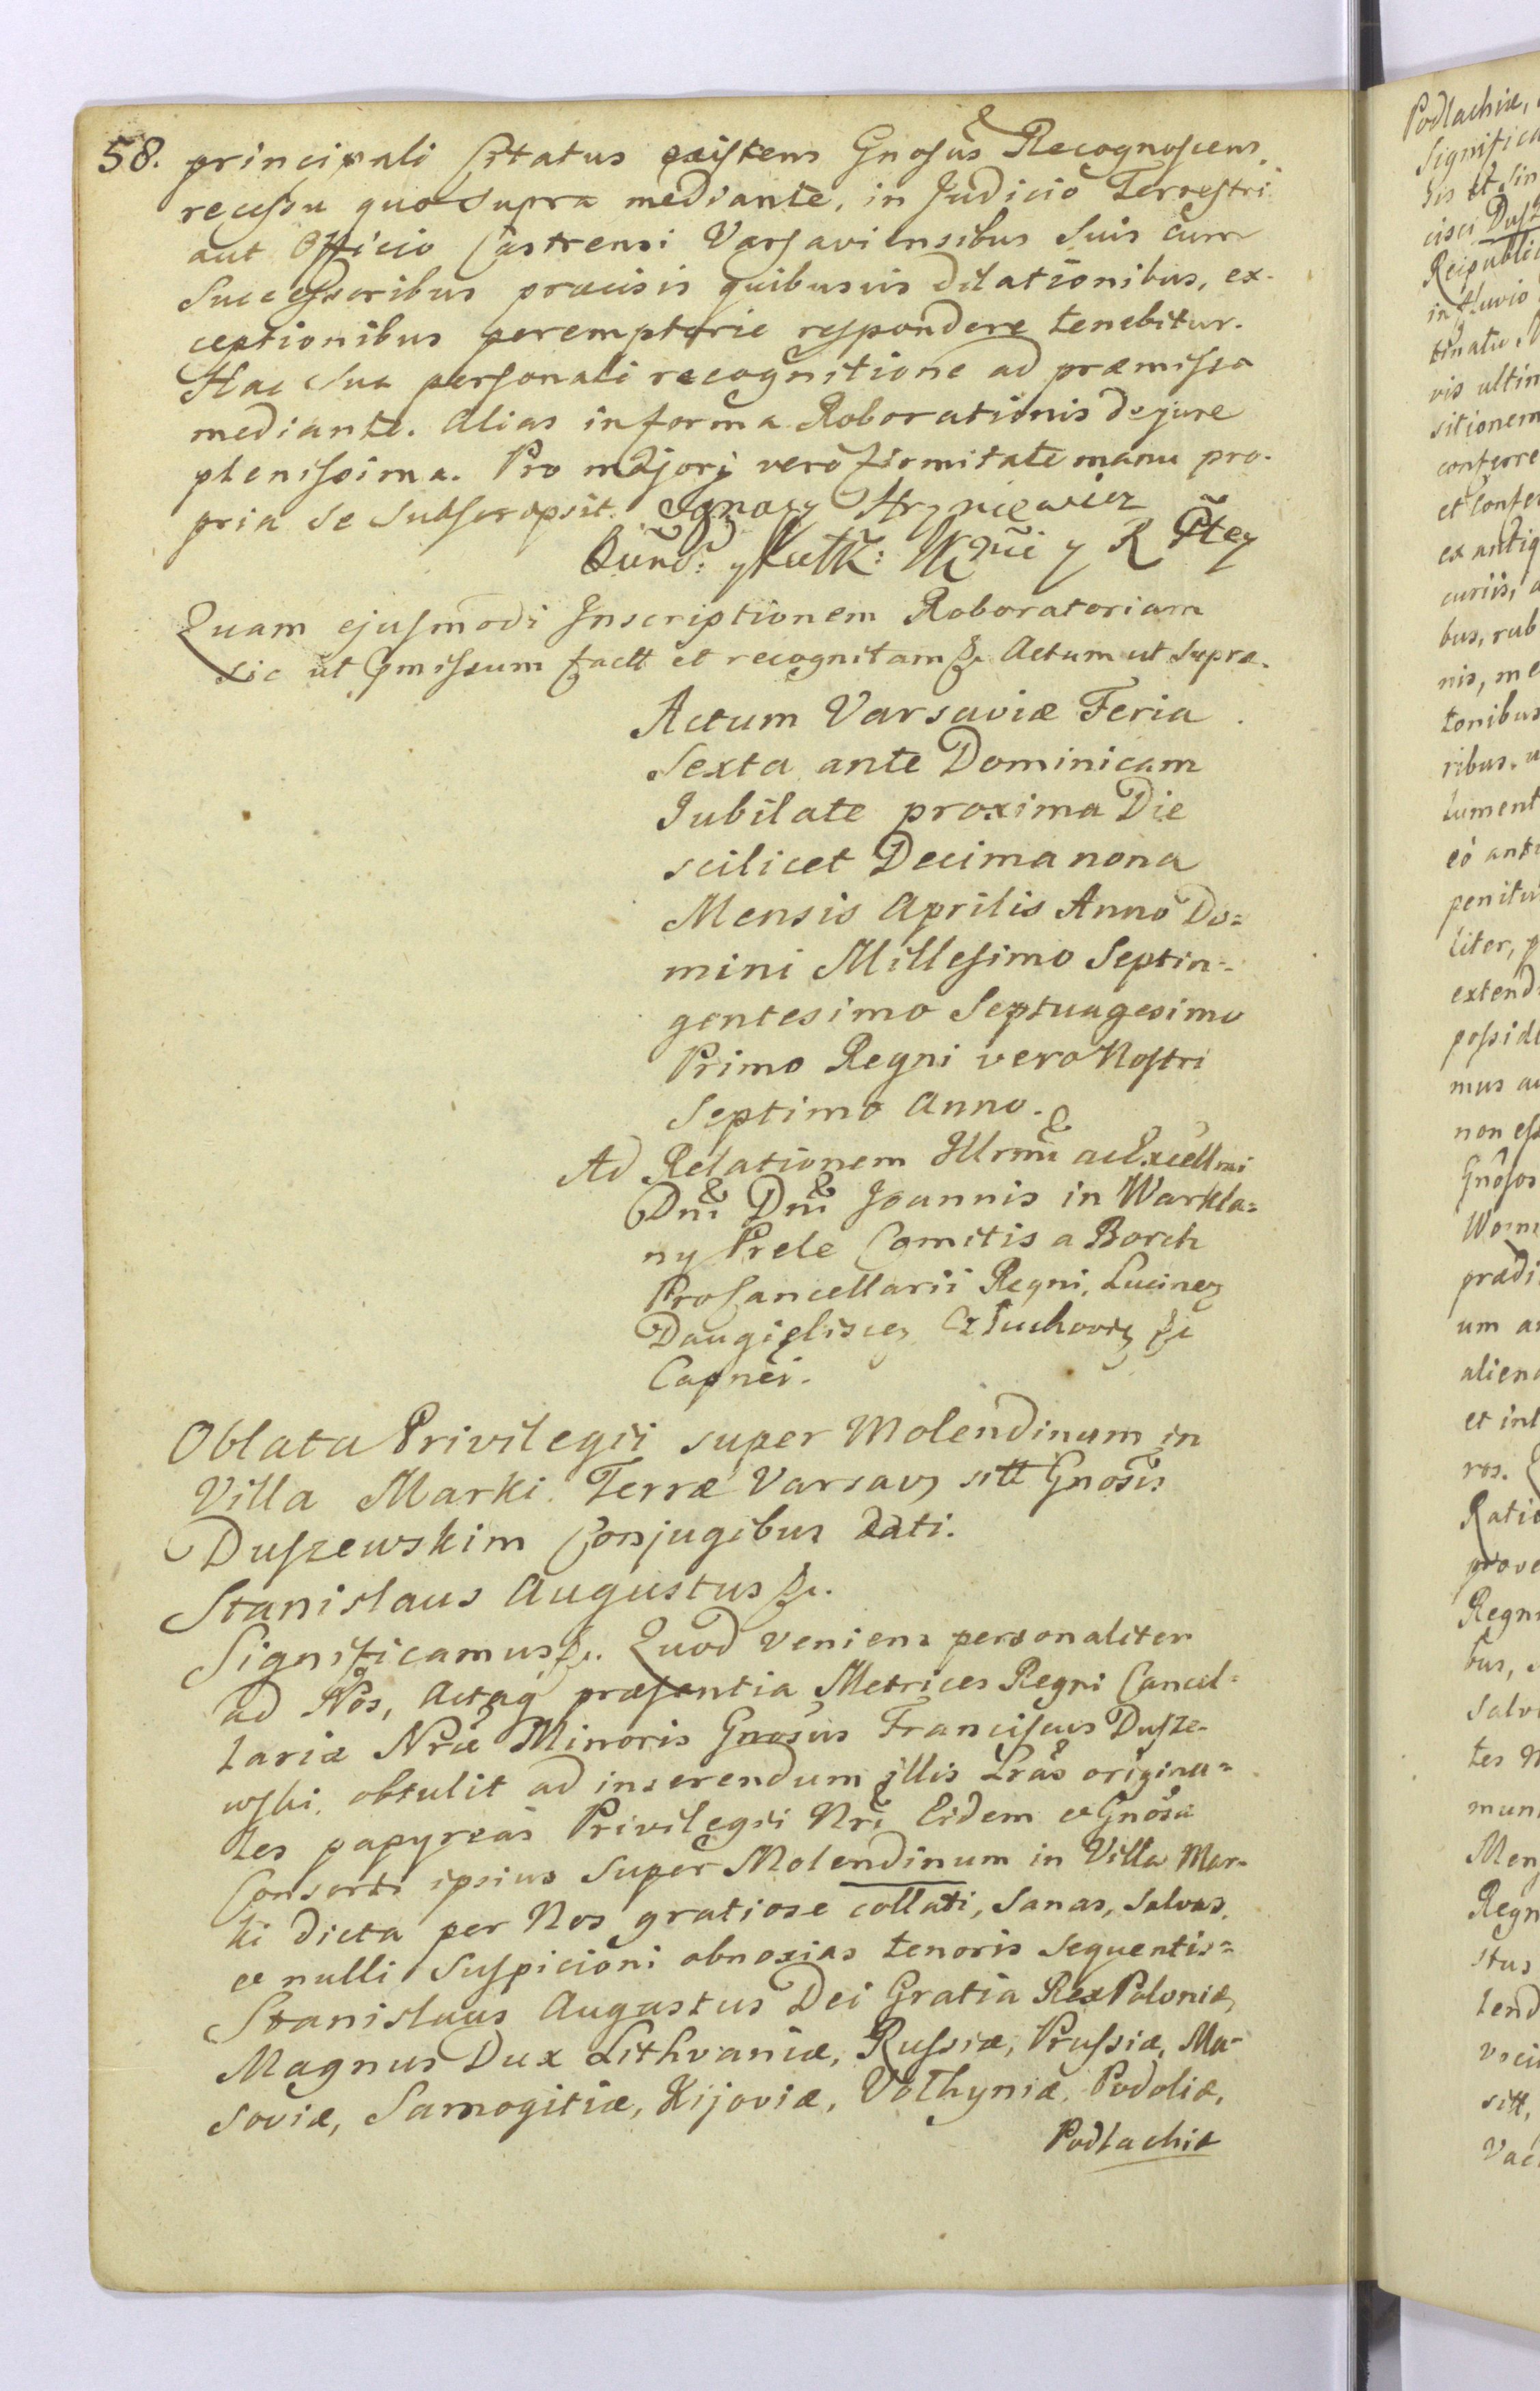 58. principali Citatus existens Gnosus Recognoscens
recessu quo supra mediante, in Judicio Terrestri
aut Officio Castrensi Varsaviensibus suis cum
Successoribus præcisis quibusvis dilationibus, ex-
ceptionibus peremptorie respondere tenebitur.
Hac sua personali recognitione ad præmissa
mediante. Alias in forma Roborationis de jure
plenissima. Pro majorj vero firmitate manu pro-
pria se subscripsit. Ignacy Hryniewicz
y R
Quam ejusmodi Inscriptionem Roboratoriam
sic ut pmissum factt et recognitam &c. Actum ut supra.
Actum Varsaviæ Feria
Sexta ante Dominicam
Jubilate proxima Die
scilicet Decima nona
Mensis Aprilis Anno Do=
mini Millesimo Septin-
gentesimo Septuagesimo
Primo Regni vero Nostri
Septimo Anno.
Ad Relationem Illrmi ac Excellmi
Dni Dni Joannis in Warkla=
ny Prele Comitis a Borch
ProCancellarii Regni, Lucinen
Daugieliscen Człuchovien &c
Capnei.
Oblata Privilegii super Molendinum in
Villa Marki Terræ Varsav sitt Gnosis
Duszewskim Conjugibus dati.
Stanislaus Augustus &c.
Significamus &c. Quod veniens personaliter
ad Nos, Actaq præsentia Metrices Regni Cancel=
lariæ Nræ Minoris Gnosus Franciscus Dusze-
wski, obtulit ad inserendum illis Lras origina=
les papyreas Privilegii Nri Eidem et Gnosa
Consorti ipsius super Molendinum in Villa Mar-
ki dicta per Nos gratiose collati, sanas, salvas,
et nulli suspicioni obnoxias tenoris sequentis=
Stanislaus Augustus Dei Gratia Rex Poloniæ,
Magnus Dux Lithvaniæ, Russiæ, Prussiæ, Ma-
soviæ, Samogitiæ, Kijoviæ, Volhyniæ, Podoliæ,
Podlachiæ
Podlachiæ,
Significa
Reipubli
vis ultim
sitionem
conferre
ex antiq
curiis, a
bus, rub
nis, me
tonibus
ribus, u
lument
penitu
liter, p
extend
possid
mus au
Gnosos
prædi
um a
aliena
et in
ros.
Ratio
prove
Regni
bus,
salv
tes N
mun
Men
Regn
stus
tend
sitt,